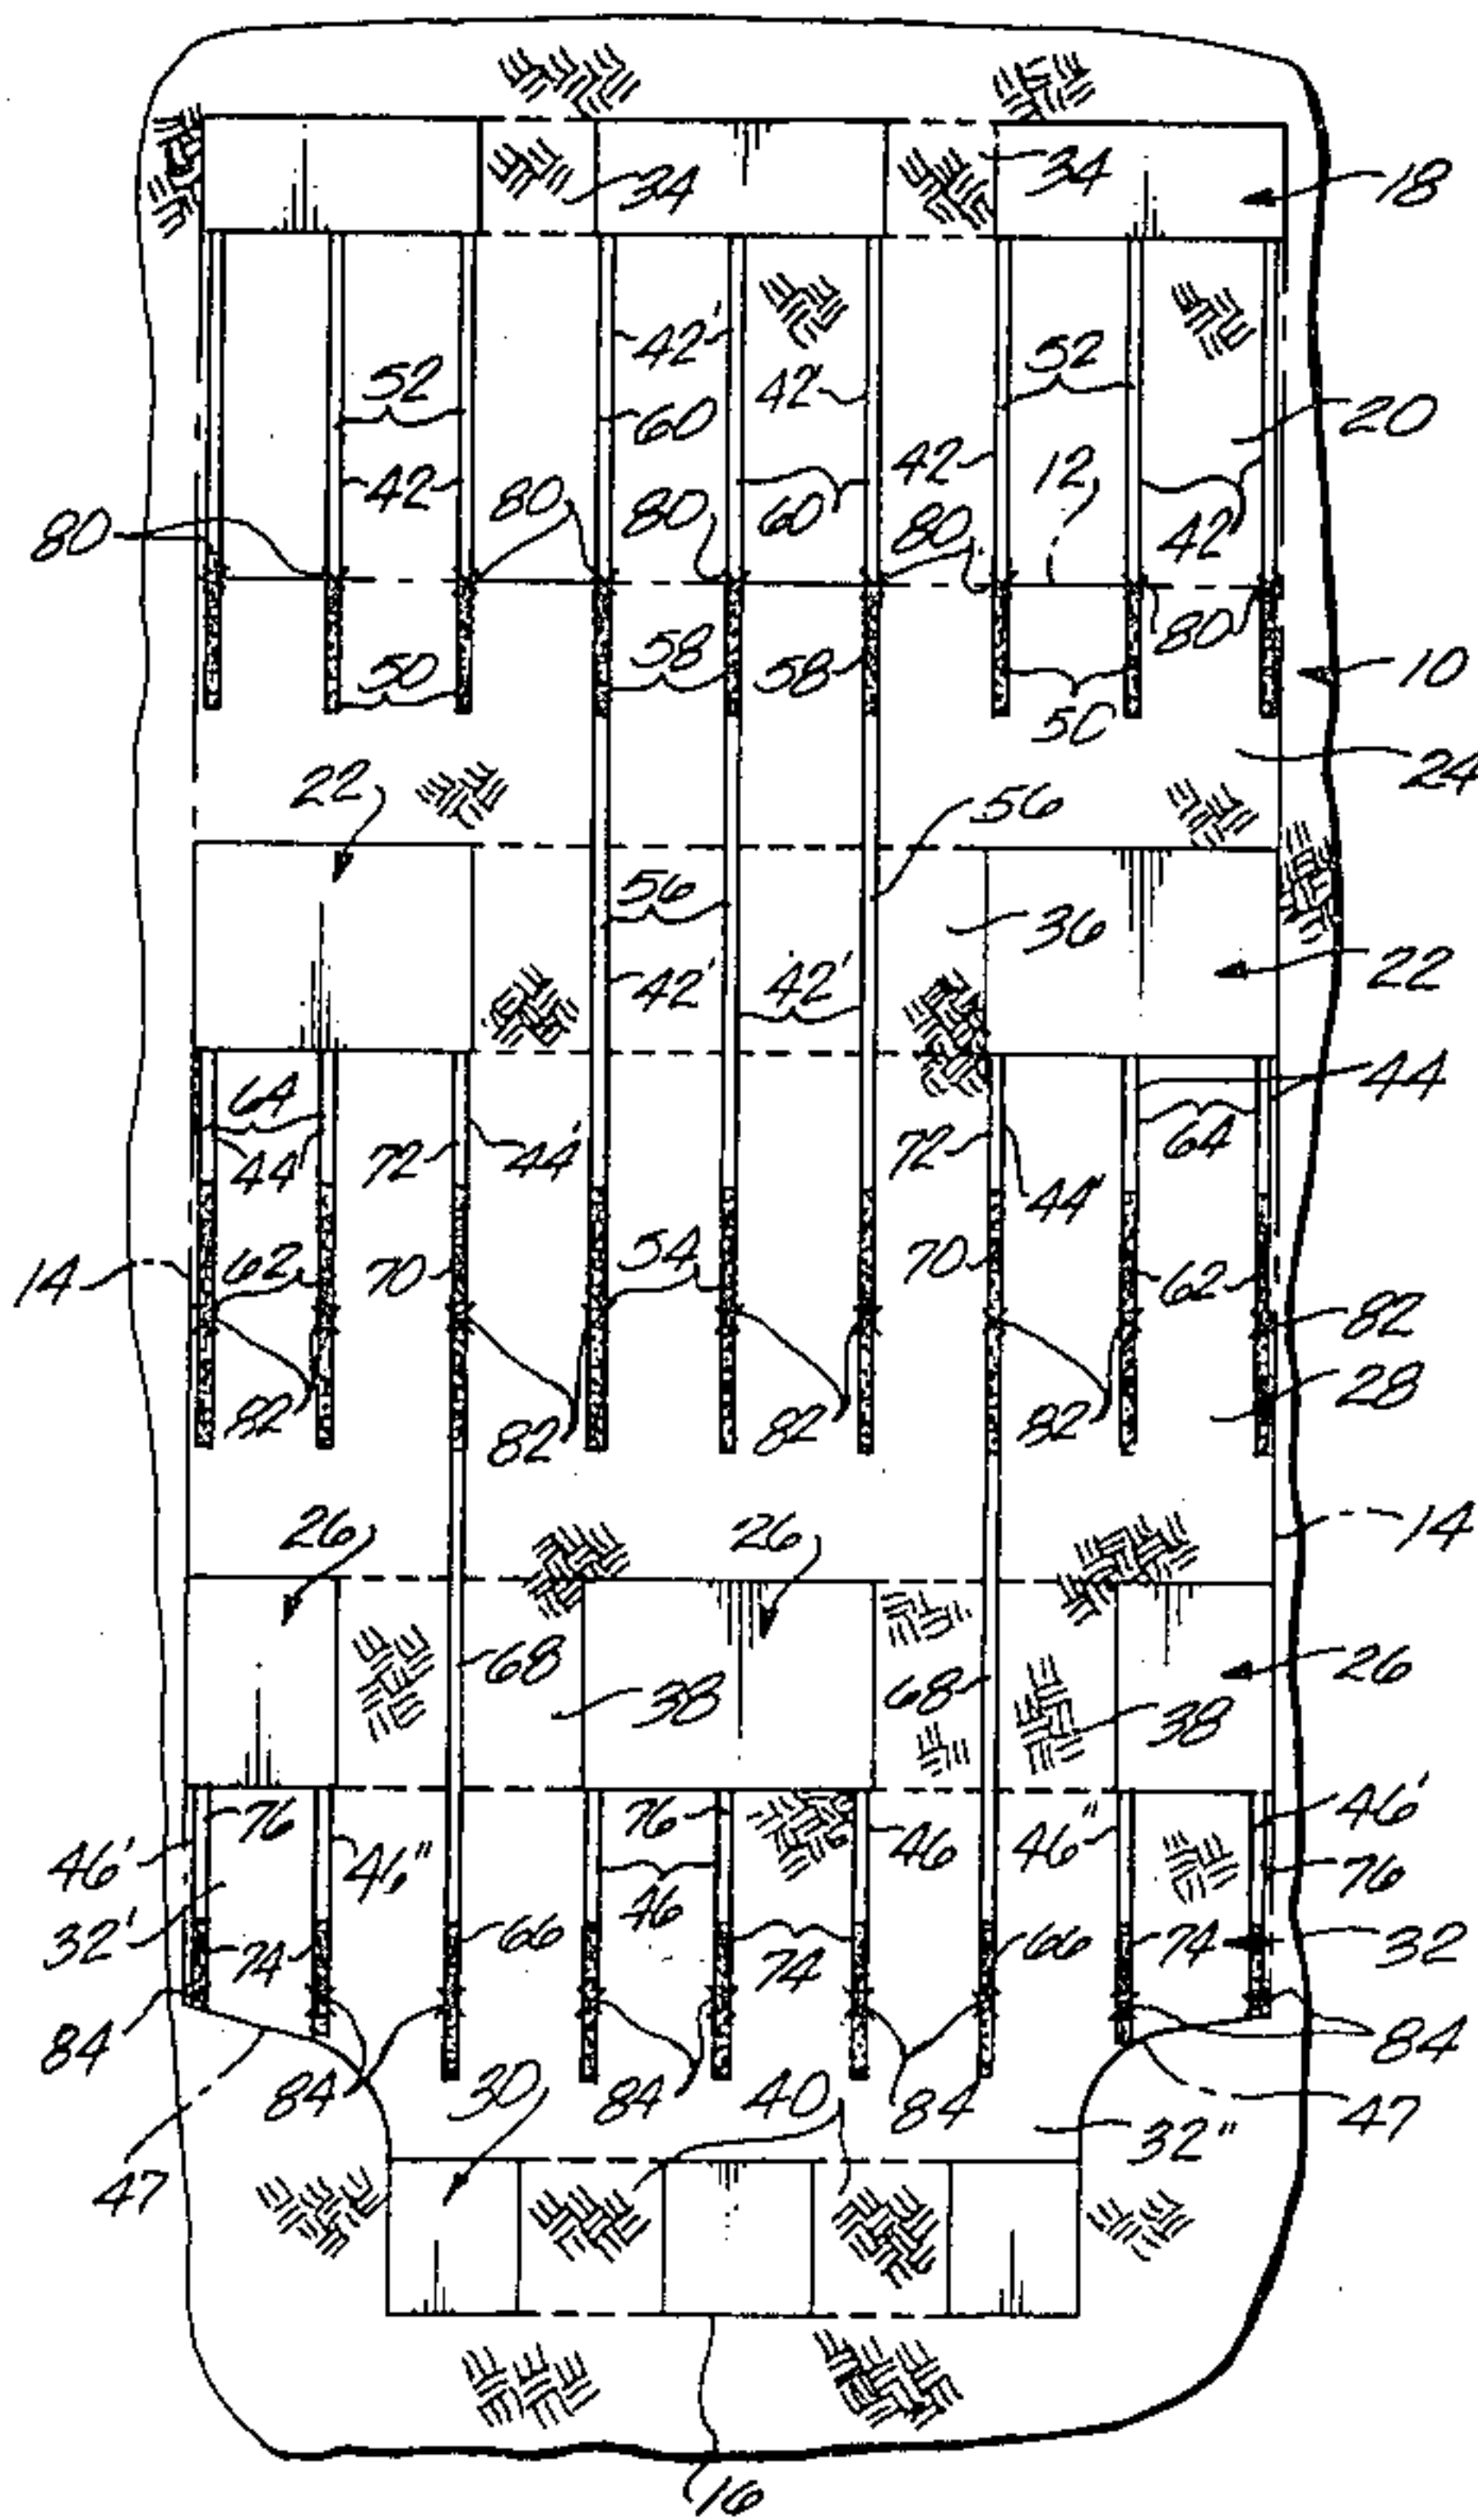 34
34
18
42'
52
42'
52
60
20
42
80
80
60
42
12
80
42
80
50
58
58
80
10
50
24
22
56
56
36
22
42'
42'
64
44
44
72
44'
72
64
44'
14
62
70
54
70
62
82
82
82
82
82
28
26
26
14
68
38
68
38
26
46'
76
46"
76
46
46"
46'
76
32'
74
66
46
74
66
74
32
84
84
30
84
40
84
32"
84
47
47
16